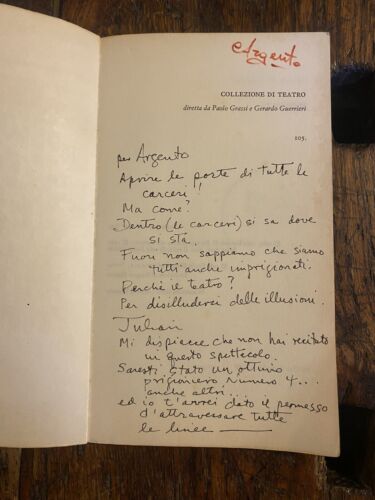 eArgento
COLLEZIONE DI TEATRO
diretta da Paolo Grassi e Gerardo Guerrieri
105.
per Argento
Aprire le porte di tutte le
carceri!
Ma come?
Dentro (le carceri) si sa dove
si sta.
Fuori non sappiamo che siamo
tutti anche imprigionati.
Perchè il teatro?
Per disilluderci delle illusioni.
Julian
Mi dispiecce che non hai recitato
in questo spettacolo.
Saresti stato un ottimo
prigioniero numero 4...
anche altri...
ed io t'avrei dato il permesso
d'attraversare tutte
le linee